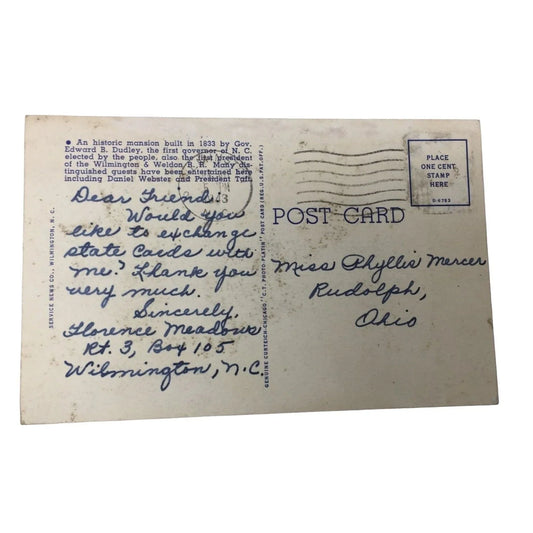 ● An historic mansion built in 1833 by Gov.
Edward B. Dudley, the first governor of N. C.
elected by the people, also the first president
of the Wilmington & Weldon R. R. Many dis-
tinguished guests have been entertained here
including Daniel Webster and President Taft.
Dear Friend:
Would you
like to exchange
state cards with
me? Thank you
very much.
Sincerely.
Florence Meadows
Rt. 3, Box 105
Wilmington, N.C.
SERVICE NEWS CO., WILMINGTON, N. C.
GENUINE CURTEICH-CHICAGO "C.T. PHOTO-PLATIN" POST CARD (REG. U.S. PAT. OFF.)
POST CARD
PLACE
ONE CENT
STAMP
HERE
Miss Phyllis Mercer
Rudolph,
Ohio